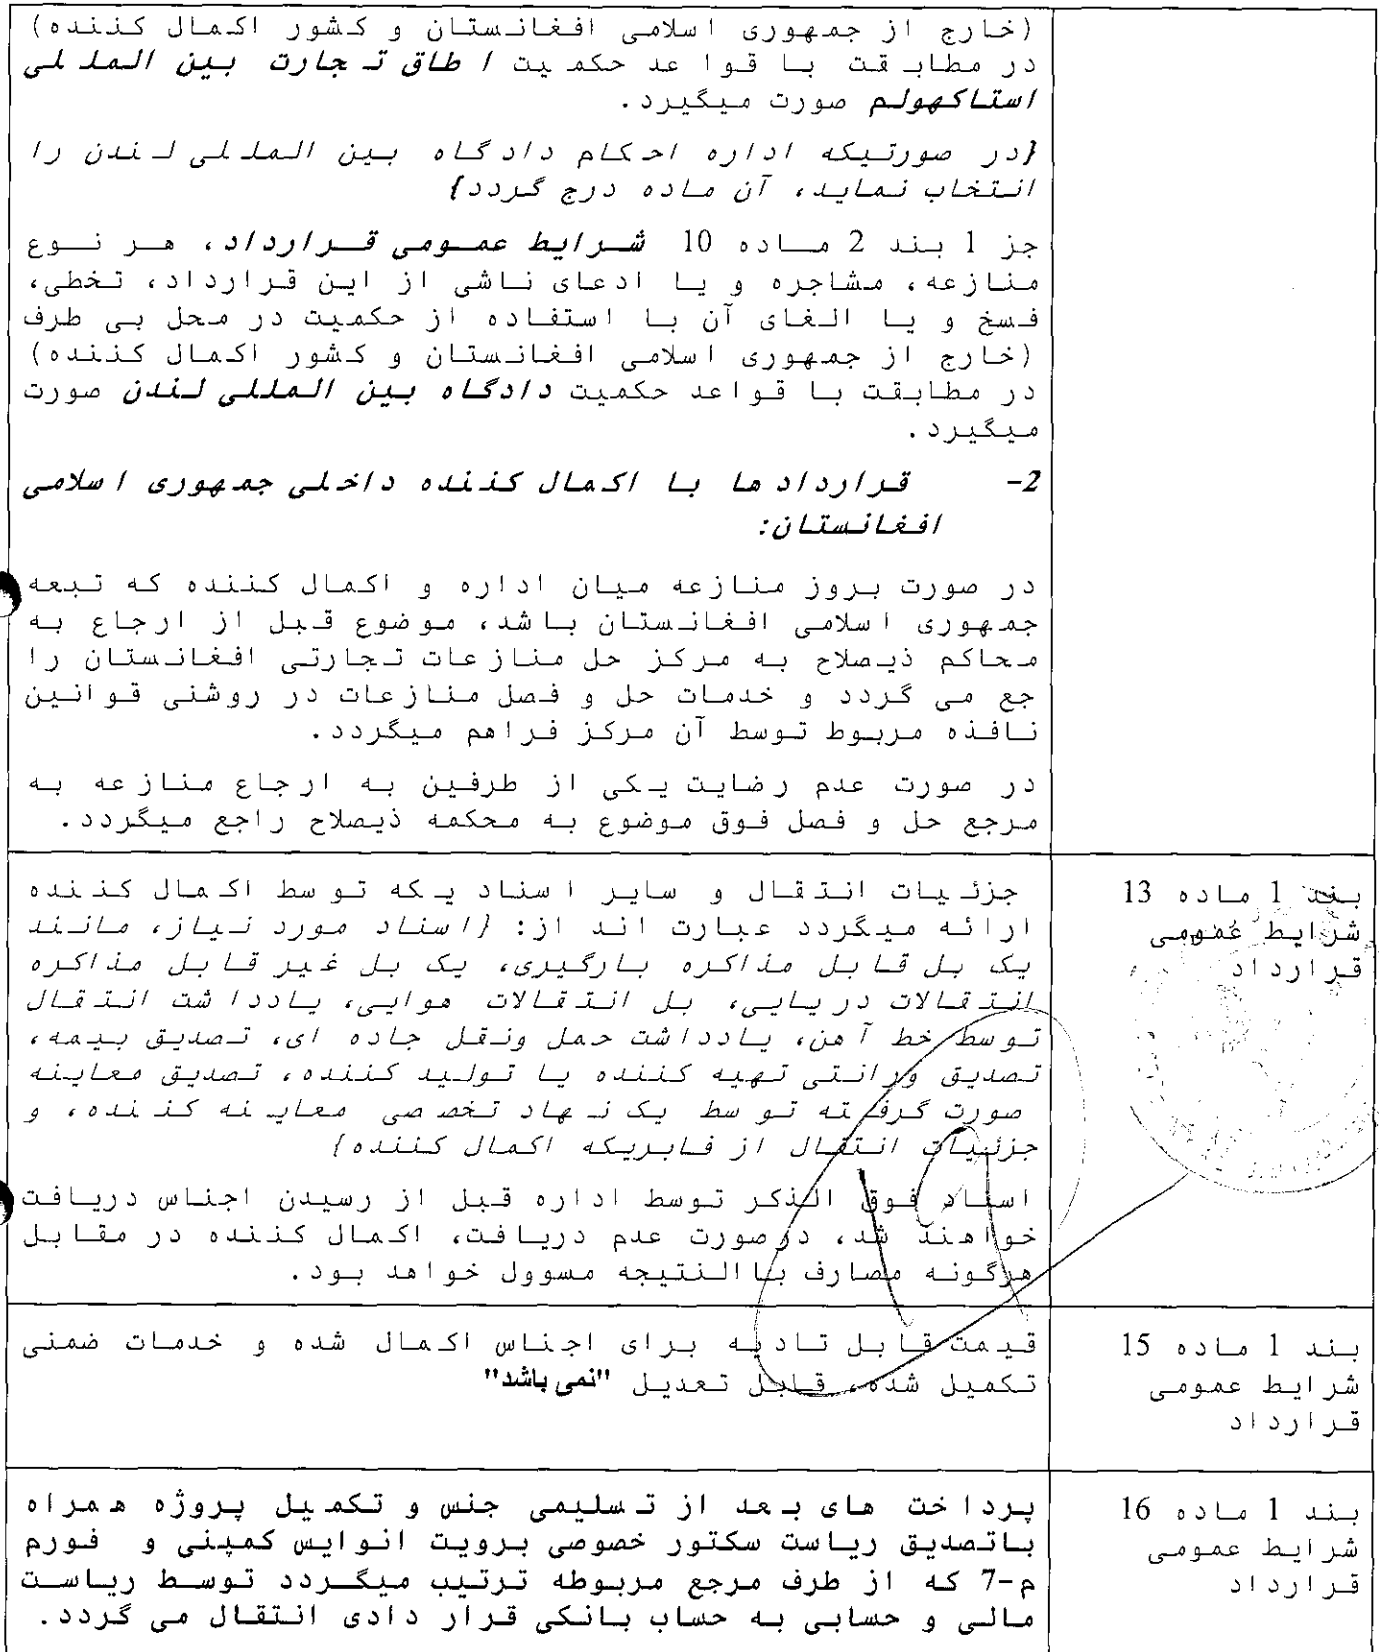 (خارج از جمهوری اسلامی افغانستان و کشور اکمال کننده)
در مطابقت با قواعد حکمیت اطاق تجارت بین المللی
استاکهولم صورت میگیرد.
{در صورتیکه اداره احکام دادگاه بین المللی لندن را
انتخاب نماید، آن ماده درج گردد}
جز 1 بند 2 ماده 10 شرایط عمومی قرارداد، هر نوع
منازعه، مشاجره و یا ادعای ناشی از این قرارداد، تخطی،
فسخ و یا الغای آن با استفاده از حکمیت در محل بی طرف
(خارج از جمهوری اسلامی افغانستان و کشور اکمال کننده)
در مطابقت با قواعد حکمیت دادگاه بین المللی لندن صورت
میگیرد.
2- قرارداد ها با اکمال کننده داخلی جمهوری اسلامی
افغانستان:
در صورت بروز منازعه میان اداره و اکمال کننده که تبعه
جمهوری اسلامی افغانستان باشد، موضوع قبل از ارجاع به
محاکم ذیصلاح به مرکز حل منازعات تجارتی افغانستان را
جع می گردد و خدمات حل و فصل منازعات در روشنی قوانین
نافذه مربوط توسط آن مرکز فراهم میگردد.
در صورت عدم رضایت یکی از طرفین به ارجاع منازعه به
مرجع حل و فصل فوق موضوع به محکمه ذیصلاح راجع میگردد.
بند 1 ماده 13
شرایط عمومی
قرارداد
جزئیات انتقال و سایر اسناد یکه توسط اکمال کننده
ارائه میگردد عبارت اند از: {اسناد مورد نیاز، مانند
یک بل قابل مذاکره بارگیری، یک بل غیر قابل مذاکره
انتقالات دریایی، بل انتقالات هوایی، یادداشت انتقال
توسط خط آهن، یادداشت حمل ونقل جاده ای، تصدیق بیمه،
تصدیق ورانتی تهیه کننده یا تولید کننده، تصدیق معاینه
صورت گرفته توسط یک نهاد تخصصی معاینه کننده، و
جزئیات انتقال از فابریکه اکمال کننده}
اسناد فوق الذکر توسط اداره قبل از رسیدن اجناس دریافت
خواهند شد، درصورت عدم دریافت، اکمال کننده در مقابل
هرگونه مصارف باالنتیجه مسوول خواهد بود.
بند 1 ماده 15
شرایط عمومی
قرارداد
قیمت قابل تادیه برای اجناس اکمال شده و خدمات ضمنی
تکمیل شده، قابل تعدیل "نمی باشد"
بند 1 ماده 16
شرایط عمومی
قرارداد
پرداخت های بعد از تسلیمی جنس و تکمیل پروژه همراه
باتصدیق ریاست سکتور خصوصی برویت انوایس کمپنی و فورم
م-7 که از طرف مرجع مربوطه ترتیب میگردد توسط ریاست
مالی و حسابی به حساب بانکی قرار دادی انتقال می گردد.